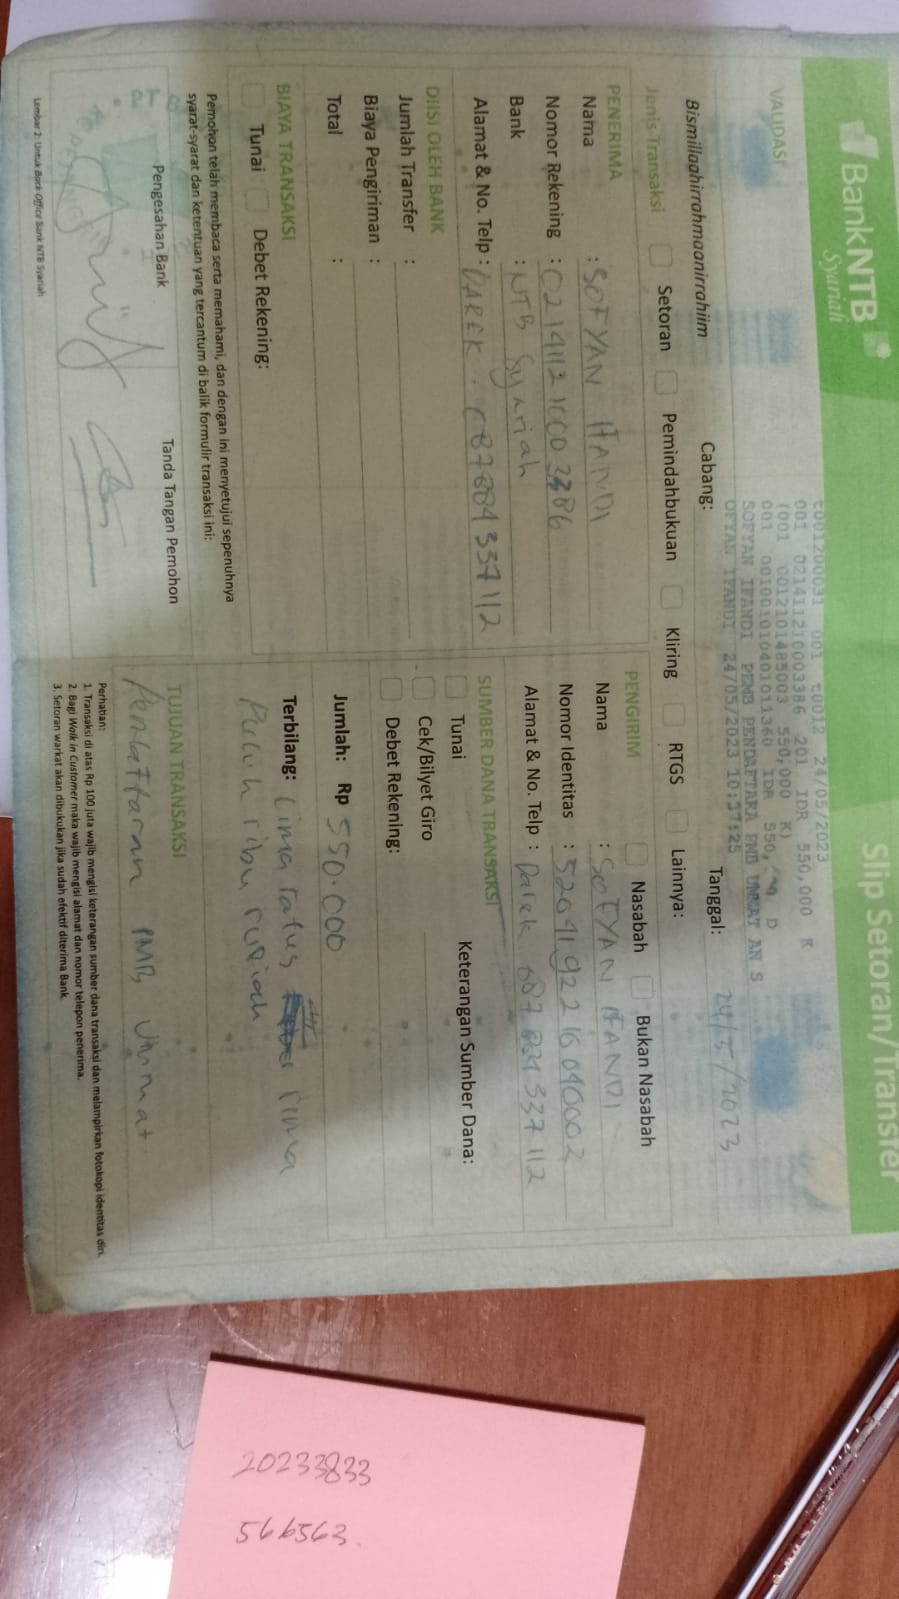 BANKNTB
Syariah
Slip Setoran/Transfer
VALIDASI
t001200031 001 t0012 24/05/2023
001 0214112100003386 201 IDR 550,000 K
(001 0012101485003 550,000 K)
001 001001010401011360 IDR 550, D
SOFYAN IFANDI PEMB PENDAFTARA PMB UMMAT AN S
OFYAN IFANDI 24/05/2023 10:37:25
Bismillaahirrahmaanirrahiim
Cabang:
Tanggal: 24/5/2023
Jenis Transaksi
Setoran
Pemindahbukuan
Kliring
RTGS
Lainnya:
PENERIMA
Nama : SOFYAN IFANDI
Nomor Rekening : 021411210003386
Bank : NTB Syariah
Alamat & No. Telp : DAREK. 087884337112
DIISI OLEH BANK
Jumlah Transfer :
Biaya Pengiriman :
Total :
BIAYA TRANSAKSI
Tunai
Debet Rekening:
Pemohon telah membaca serta memahami, dan dengan ini menyetujui sepenuhnya
syarat-syarat dan ketentuan yang tercantum di balik formulir transaksi ini:
Pengesahan Bank
Tanda Tangan Pemohon
PENGIRIM
Nasabah
Bukan Nasabah
Nama : SOFYAN IFANDI
Nomor Identitas : 5204192216040002
Alamat & No. Telp : Darek 087884337112
SUMBER DANA TRANSAKSI
Keterangan Sumber Dana:
Tunai
Cek/Bilyet Giro
Debet Rekening:
Jumlah: Rp 550.000
Terbilang: Lima ratus lima
Puluh ribu rupiah
TUJUAN TRANSAKSI
Pendaftaran PMB Ummat
Perhatian:
1. Transaksi di atas Rp 100 juta wajib mengisi keterangan sumber dana transaksi dan melampirkan fotokopi identitas diri.
2. Bagi Walk in Customer maka wajib mengisi alamat dan nomor telepon penerima.
3. Setoran warkat akan dibukukan jika sudah efektif diterima Bank.
Lembar 2: Untuk Back Office Bank NTB Syariah
20233833
566563.